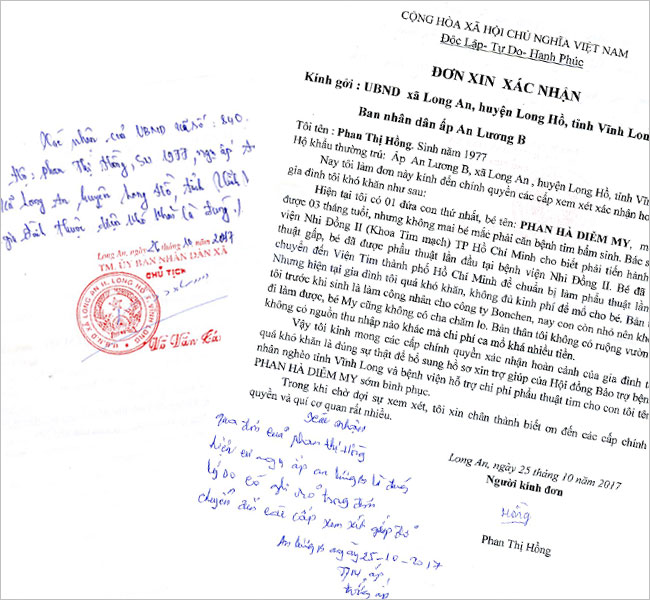 CỘNG HÒA XÃ HỘI CHỦ NGHĨA VIỆT NAM
Độc Lập- Tự Do- Hạnh Phúc
ĐƠN XIN XÁC NHẬN
Kính gởi : UBND xã Long An, huyện Long Hồ, tỉnh Vĩnh Lon
Ban nhân dân ấp An Lương B
Tôi tên : Phan Thị Hồng. Sinh năm 1977
Hộ khẩu thường trú: Ấp An Lương B, xã Long An , huyện Long Hồ, tỉnh Vĩ
Nay tôi làm đơn này kính đến chính quyền các cấp xem xét xác nhận ho
gia đình tôi khó khăn như sau:
Hiện tại tôi có 01 đứa con thứ nhất, bé tên: PHAN HÀ DIỄM MY, m
được 03 tháng tuổi, nhưng không mai bé mắc phải căn bệnh tim bẩm sinh. Bác s
viện Nhi Đồng II (Khoa Tim mạch) TP Hồ Chí Minh cho biết phải tiến hành
thuật gấp, bé đã được phẩu thuật lần đầu tại bệnh viện Nhi Đồng II. Bé đã
chuyển đến Viện Tim thành phố Hồ Chí Minh để chuẩn bị làm phẩu thuật lần
Nhưng hiện tại gia đình tôi quá khó khăn, không đủ kinh phí để mổ cho bé. Bản
tôi trước khi sinh là làm công nhân cho công ty Bonchen, nay con còn nhỏ nên kh
đi làm được, bé My cũng không có cha chăm lo. Bản thân tôi không có ruộng vườn
không có nguồn thu nhập nào khác mà chi phí ca mổ khá nhiều tiền.
Vậy tôi kính mong các cấp chính quyền xác nhận hoàn cảnh của gia đình t
quá khó khăn là đúng sự thật để bổ sung hồ sơ xin trợ giúp của Hội đồng Bảo trợ bện
nhân nghèo tỉnh Vĩnh Long và bệnh viện hỗ trợ chi phí phẩu thuật tim cho con tôi tê
PHAN HÀ DIỄM MY sớm bình phục.
Trong khi chờ đợi sự xem xét, tôi xin chân thành biết ơn đến các cấp chính
quyền và quí cơ quan rất nhiều.
Long An, ngày 25 tháng 10 năm 2017
Người kính đơn
Hồng
Phan Thị Hồng
Xác nhận của UBND xã số: 840.
Hộ: Phan Thị Hồng, SN 1977, ngụ ấp An
xã Long An, huyện Long Hồ, tỉnh Vĩnh
gia đình thuộc diện khó khăn là đúng./
Long An, ngày 26 tháng 10 năm 2017
TM ỦY BAN NHÂN DÂN XÃ
CHỦ TỊCH
U.B.N.D XÃ LONG AN H. LONG HỒ T. VĨNH LONG
Võ Văn
Xác nhận
qua đơn của Phan Thị Hồng
hiện cư ngụ ấp An Lương B là đúng
lý do có ghi như trong đơn
chuyển đến các cấp xem xét giúp đỡ
An Lương B ngày 25-10-2017
TM ấp
trưởng ấp